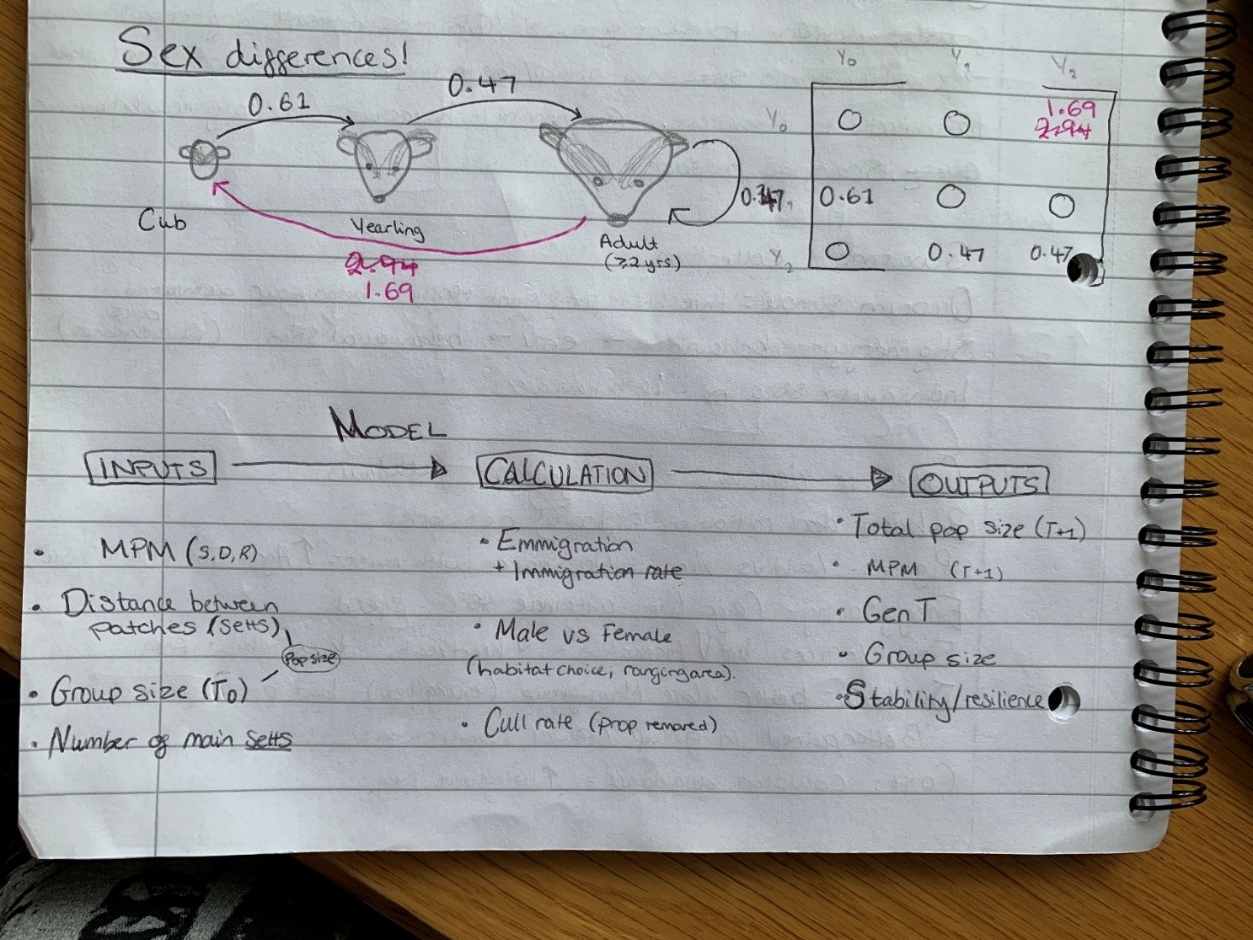 Sex differences!
0.61
0.47
Cub
Yearling
Adult
(≥2 yrs)
2.94
1.69
Y0 Y1 Y2
Y0 0 0 1.69
2.94
0.61 0 0
Y2 0 0.47 0.47
MODEL
INPUTS
• MPM (S,D,R)
• Distance between
patches (setts)
Pop size
• Group size (T0)
• Number of main setts
CALCULATION
• Emmigration
+ Immigration rate
• Male vs Female
(habitat choice, ranging area).
• Cull rate (prop removed)
OUTPUTS
• Total pop size (T+1)
• MPM (T+1)
• Gen T
• Group size
• Stability/resilience